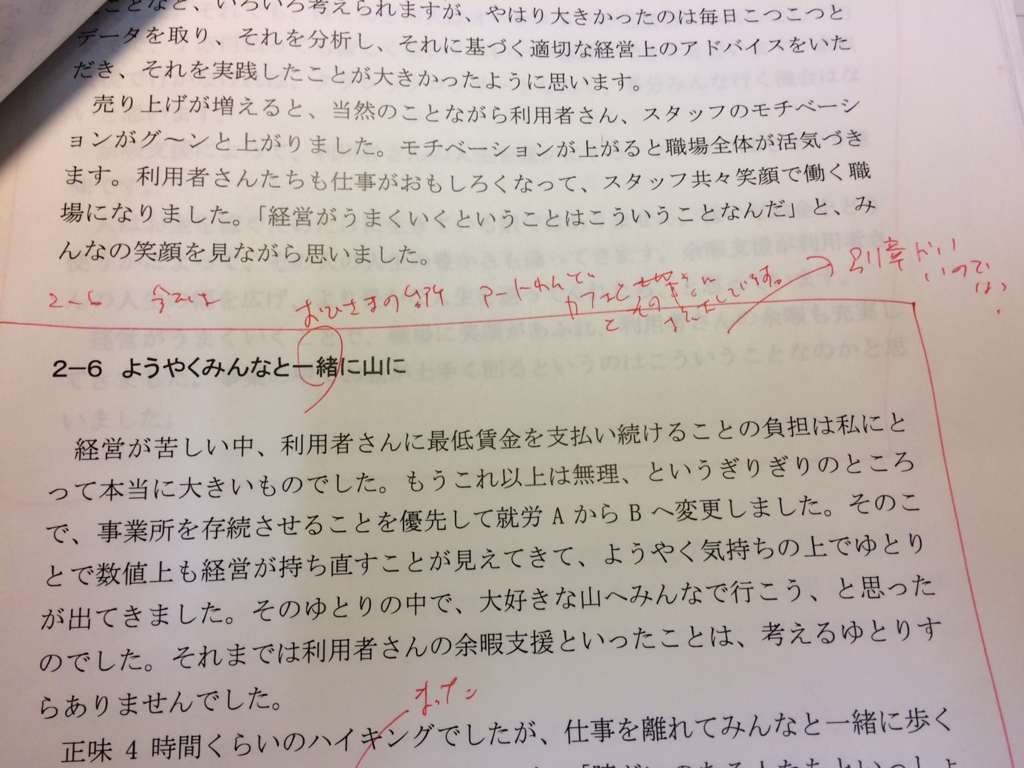 ことなど、いろいろ考えられますが、やはり大きかったのは毎日こつこつと
データを取り、それを分析し、それに基づく適切な経営上のアドバイスをいた
だき、それを実践したことが大きかったように思います。
売り上げが増えると、当然のことながら利用者さん、スタッフのモチベーシ
ョンがグ〜ンと上がりました。モチベーションが上がると職場全体が活気づき
ます。利用者さんたちも仕事がおもしろくなって、スタッフ共々笑顔で働く職
場になりました。「経営がうまくいくということはこういうことなんだ」と、み
んなの笑顔を見ながら思いました。
別章がいい
いのでは
2−6 ようやくみんなと一緒に山に
経営が苦しい中、利用者さんに最低賃金を支払い続けることの負担は私にと
って本当に大きいものでした。もうこれ以上は無理、というぎりぎりのところ
で、事業所を存続させることを優先して就労 A から B へ変更しました。そのこ
とで数値上も経営が持ち直すことが見えてきて、ようやく気持ちの上でゆとり
が出てきました。そのゆとりの中で、大好きな山へみんなで行こう、と思った
のでした。それまでは利用者さんの余暇支援といったことは、考えるゆとりす
らありませんでした。
正味 4 時間くらいのハイキングでしたが、仕事を離れてみんなと一緒に歩く